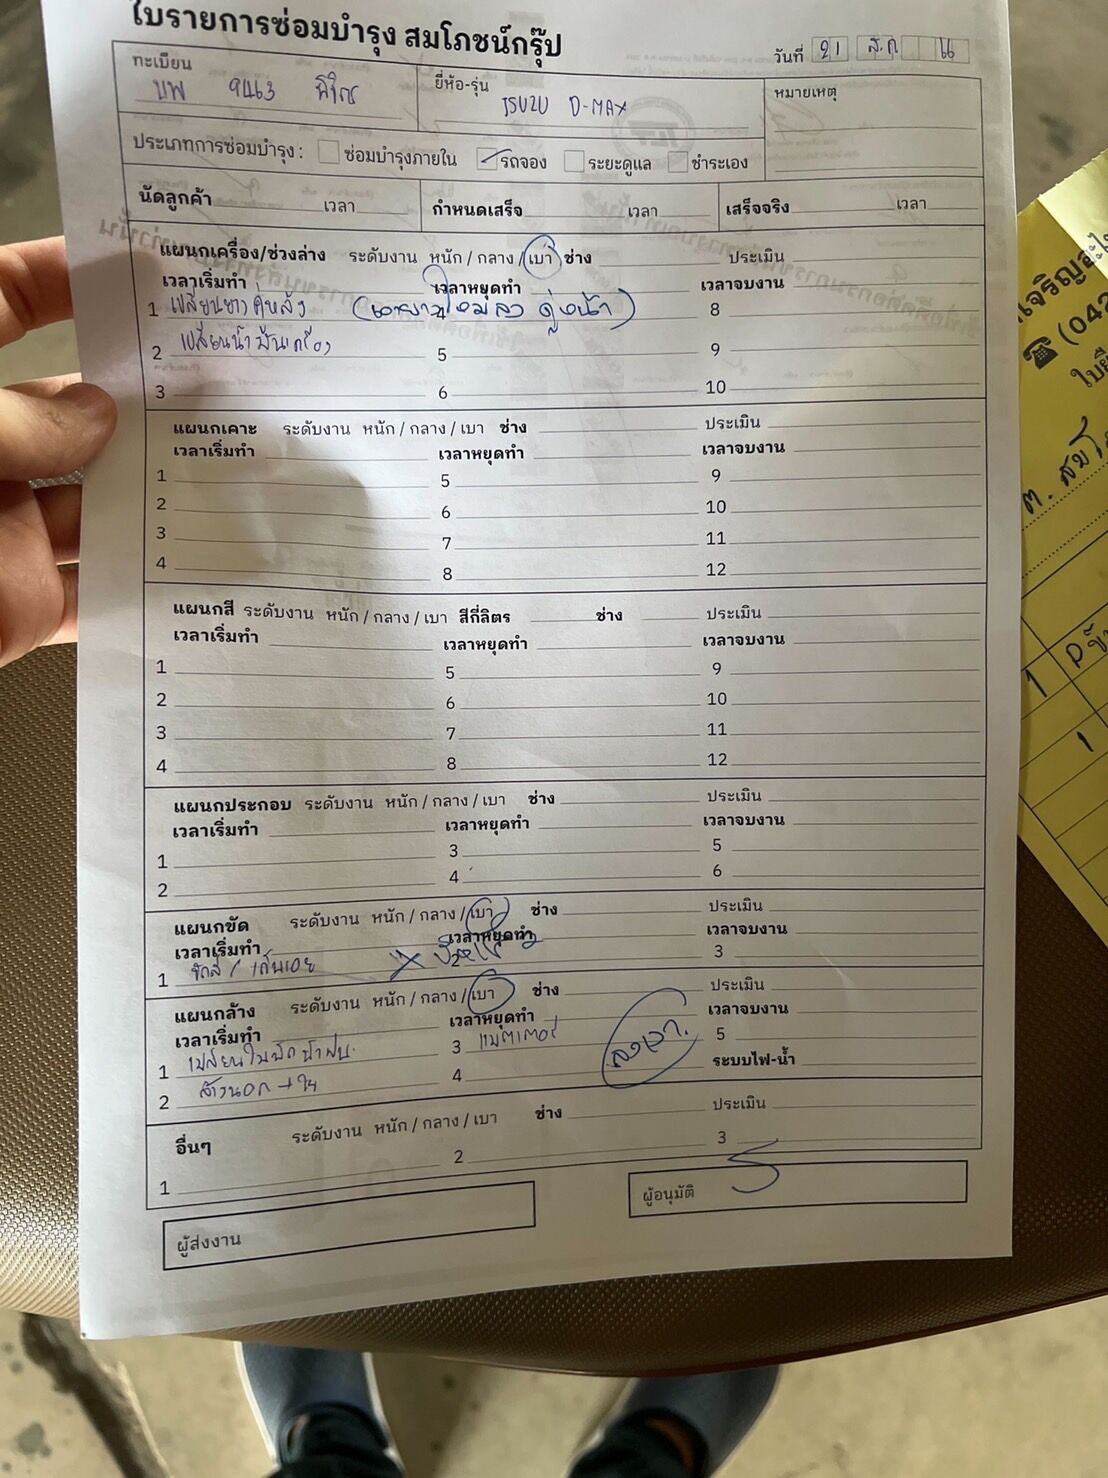 ใบรายการซ่อมบำรุง สมโภชน์กรุ๊ป
วันที่ 21 ส.ค
ทะเบียน ยี่ห้อ-รุ่น หมายเหตุ
บพ 9463 ISUZU D-MAX
ประเภทการซ่อมบำรุง : ซ่อมบำรุงภายใน รถจอง ระยะดูแล ชำระเอง
นัดลูกค้า เวลา กำหนดเสร็จ เวลา เสร็จจริง เวลา
แผนกเครื่อง/ช่วงล่าง ระดับงาน หนัก / กลาง / เบา ช่าง ประเมิน
เวลาเริ่มทำ เวลาหยุดทำ เวลาจบงาน
1 เปลี่ยนยางคู่หลัง 8
2 เปลี่ยนน้ำมันเครื่อง 5 9
3 6 10
แผนกเคาะ ระดับงาน หนัก / กลาง / เบา ช่าง ประเมิน
เวลาเริ่มทำ เวลาหยุดทำ เวลาจบงาน
1 5 9
2 6 10
3 7 11
4 8 12
แผนกสี ระดับงาน หนัก / กลาง / เบา สีกี่ลิตร ช่าง ประเมิน
เวลาเริ่มทำ เวลาหยุดทำ เวลาจบงาน
1 5 9
2 6 10
3 7 11
4 8 12
แผนกประกอบ ระดับงาน หนัก / กลาง / เบา ช่าง ประเมิน
เวลาเริ่มทำ เวลาหยุดทำ เวลาจบงาน
1 3 5
2 4 6
แผนกขัด ระดับงาน หนัก / กลาง / เบา ช่าง ประเมิน
เวลาเริ่มทำ เวลาหยุดทำ เวลาจบงาน
1 ขัดสี / 2 3
แผนกล้าง ระดับงาน หนัก / กลาง / เบา ช่าง ประเมิน
เวลาเริ่มทำ เวลาหยุดทำ เวลาจบงาน
1 เปลี่ยนใบปัดน้ำฝน 3 แบตเตอรี่ 5
2 ล้างนอก → ใน 4 ระบบไฟ-น้ำ
อื่นๆ ระดับงาน หนัก / กลาง / เบา ช่าง ประเมิน
1 2 3
ผู้ส่งงาน ผู้อนุมัติ
(042